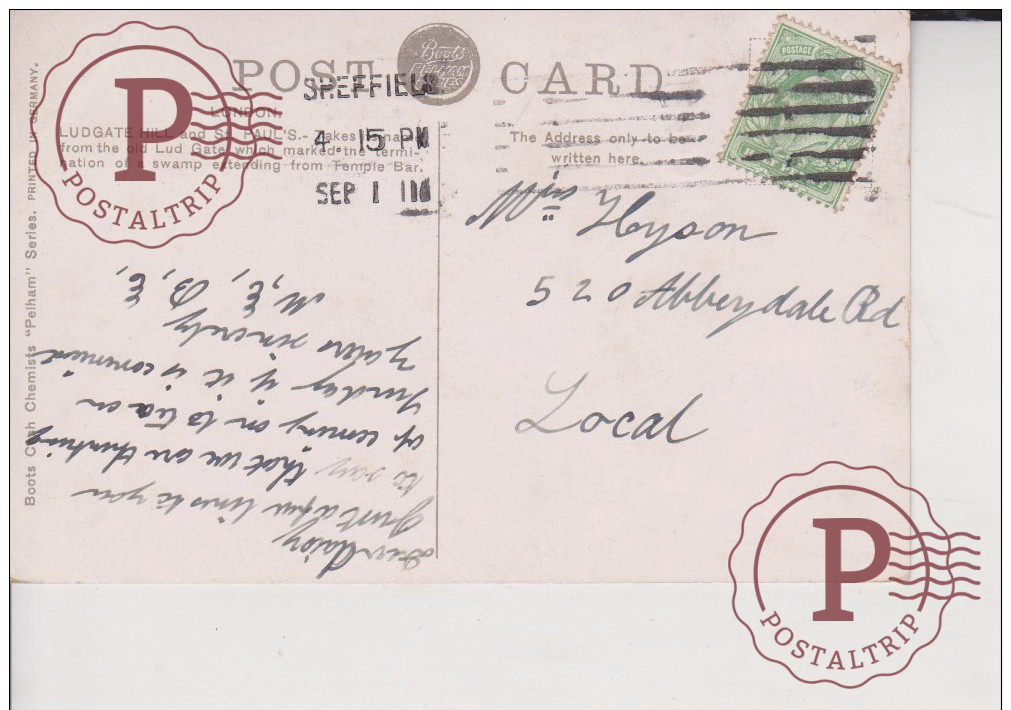 POST CARD
Boots
SHEFFIELD
4. 15 PM
SEP 1 11
POSTAGE
LONDON.
LUDGATE HILL and St. PAUL'S.— takes name
from the old Lud Gate, which marked the termi-
nation of a swamp extending from Temple Bar.
The Address only to be
written here.
Boots Cash Chemists "Pelham" Series. PRINTED IN GERMANY.
Miss Hyson
520 Abbeydale Rd
Local
Dear Daisy
Just a few lines to you
to say that we are thinking
of coming on to tea on
Sunday if it is convenient
Yours sincerely
M, E, B, E,
P
POSTALTRIP
P
POSTALTRIP